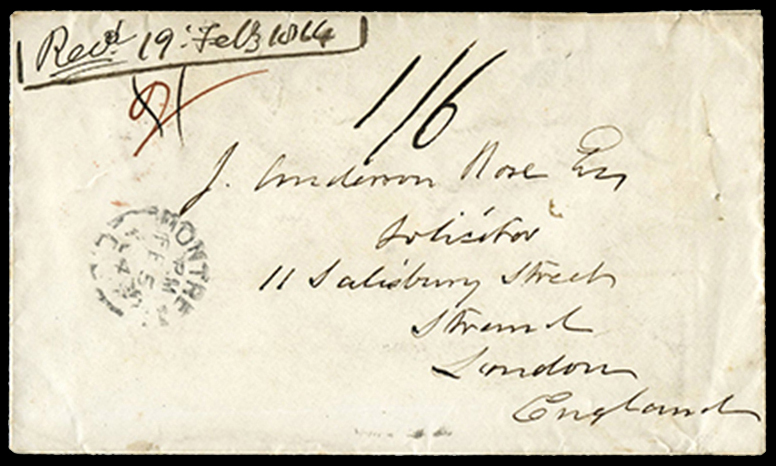 Recd 19 Feb 1864
1/6
J. Anderson Rose Esq
Solicitor
11 Salisbury Street
Strand
London
England
MONTRE
PM
FE 5